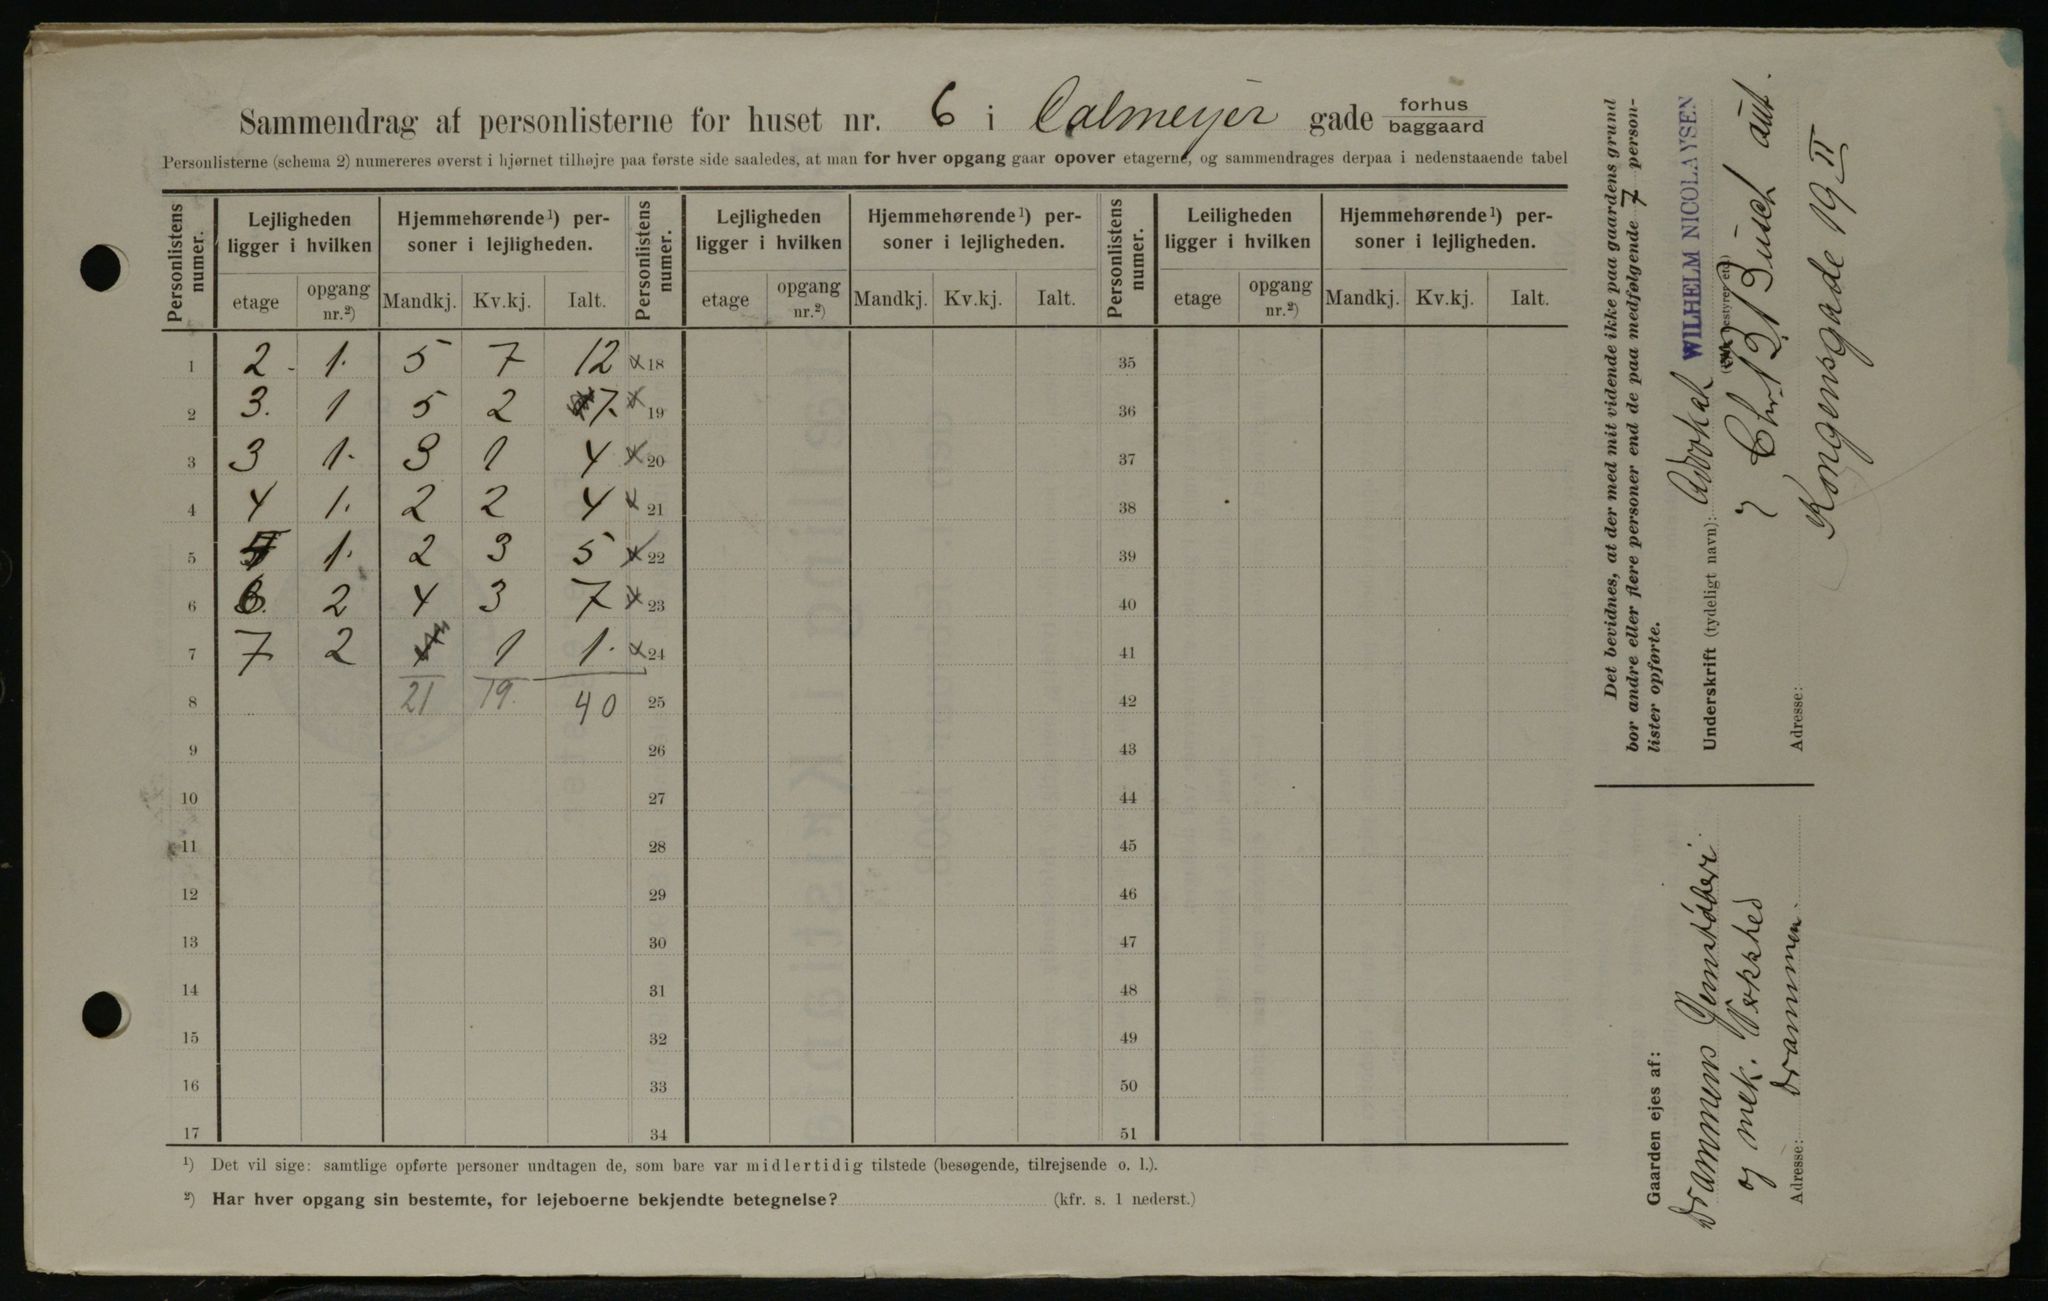 Sammendrag af personlisterne for huset nr. 6 i Calmeyer gade forhus baggaard
Personlisterne (schema 2) numereres øverst i hjørnet tilhøjre paa første side saaledes, at man for hver opgang gaar opover etagerne, og sammendrages derpaa i nedenstaaende tabel
Personlistens numer. Lejligheden ligger i hvilken Hjemmehørende¹) personer i lejligheden. Personlistens numer. Lejligheden ligger i hvilken Hjemmehørende¹) personer i lejligheden. Personlistens numer. Leiligheden ligger i hvilken Hjemmehørende¹) personer i lejligheden.
etage opgang nr.²) Mandkj. Kv.kj. Ialt. etage opgang nr.²) Mandkj. Kv.kj. Ialt. etage opgang nr.²) Mandkj. Kv.kj. Ialt.
1 2 1. 5 7 12 x 18 35
2 3. 1 5 2 7. x 19 36
3 3 1. 3 1 4 x 20 37
4 4 1. 2 2 4 x 21 38
5 1. 2 3 5 x 22 39
6 2 4 3 7 x 23 40
7 7 2 1 1. x 24 41
8 21 19. 40 25 42
9 26 43
10 27 44
11 28 45
12 29 46
13 30 47
14 31 48
15 32 49
16 33 50
17 34 51
¹) Det vil sige: samtlige opførte personer undtagen de, som bare var midlertidig tilstede (besøgende, tilrejsende o. l.).
²) Har hver opgang sin bestemte, for lejeboerne bekjendte betegnelse? (kfr. s. 1 nederst.)
Det bevidnes, at der med mit vidende ikke paa gaardens grund
bor andre eller flere personer end de paa medfølgende 7 person-
lister opførte.
Underskrift (tydeligt navn): Advokat WILHELM NICOLAYSEN
Chr. B. Busch aut.
Adresse: Kongensgade 19 II
Gaarden ejes af:
Drammens Jernstøberi
og mek. Værksted
Adresse: Drammen.